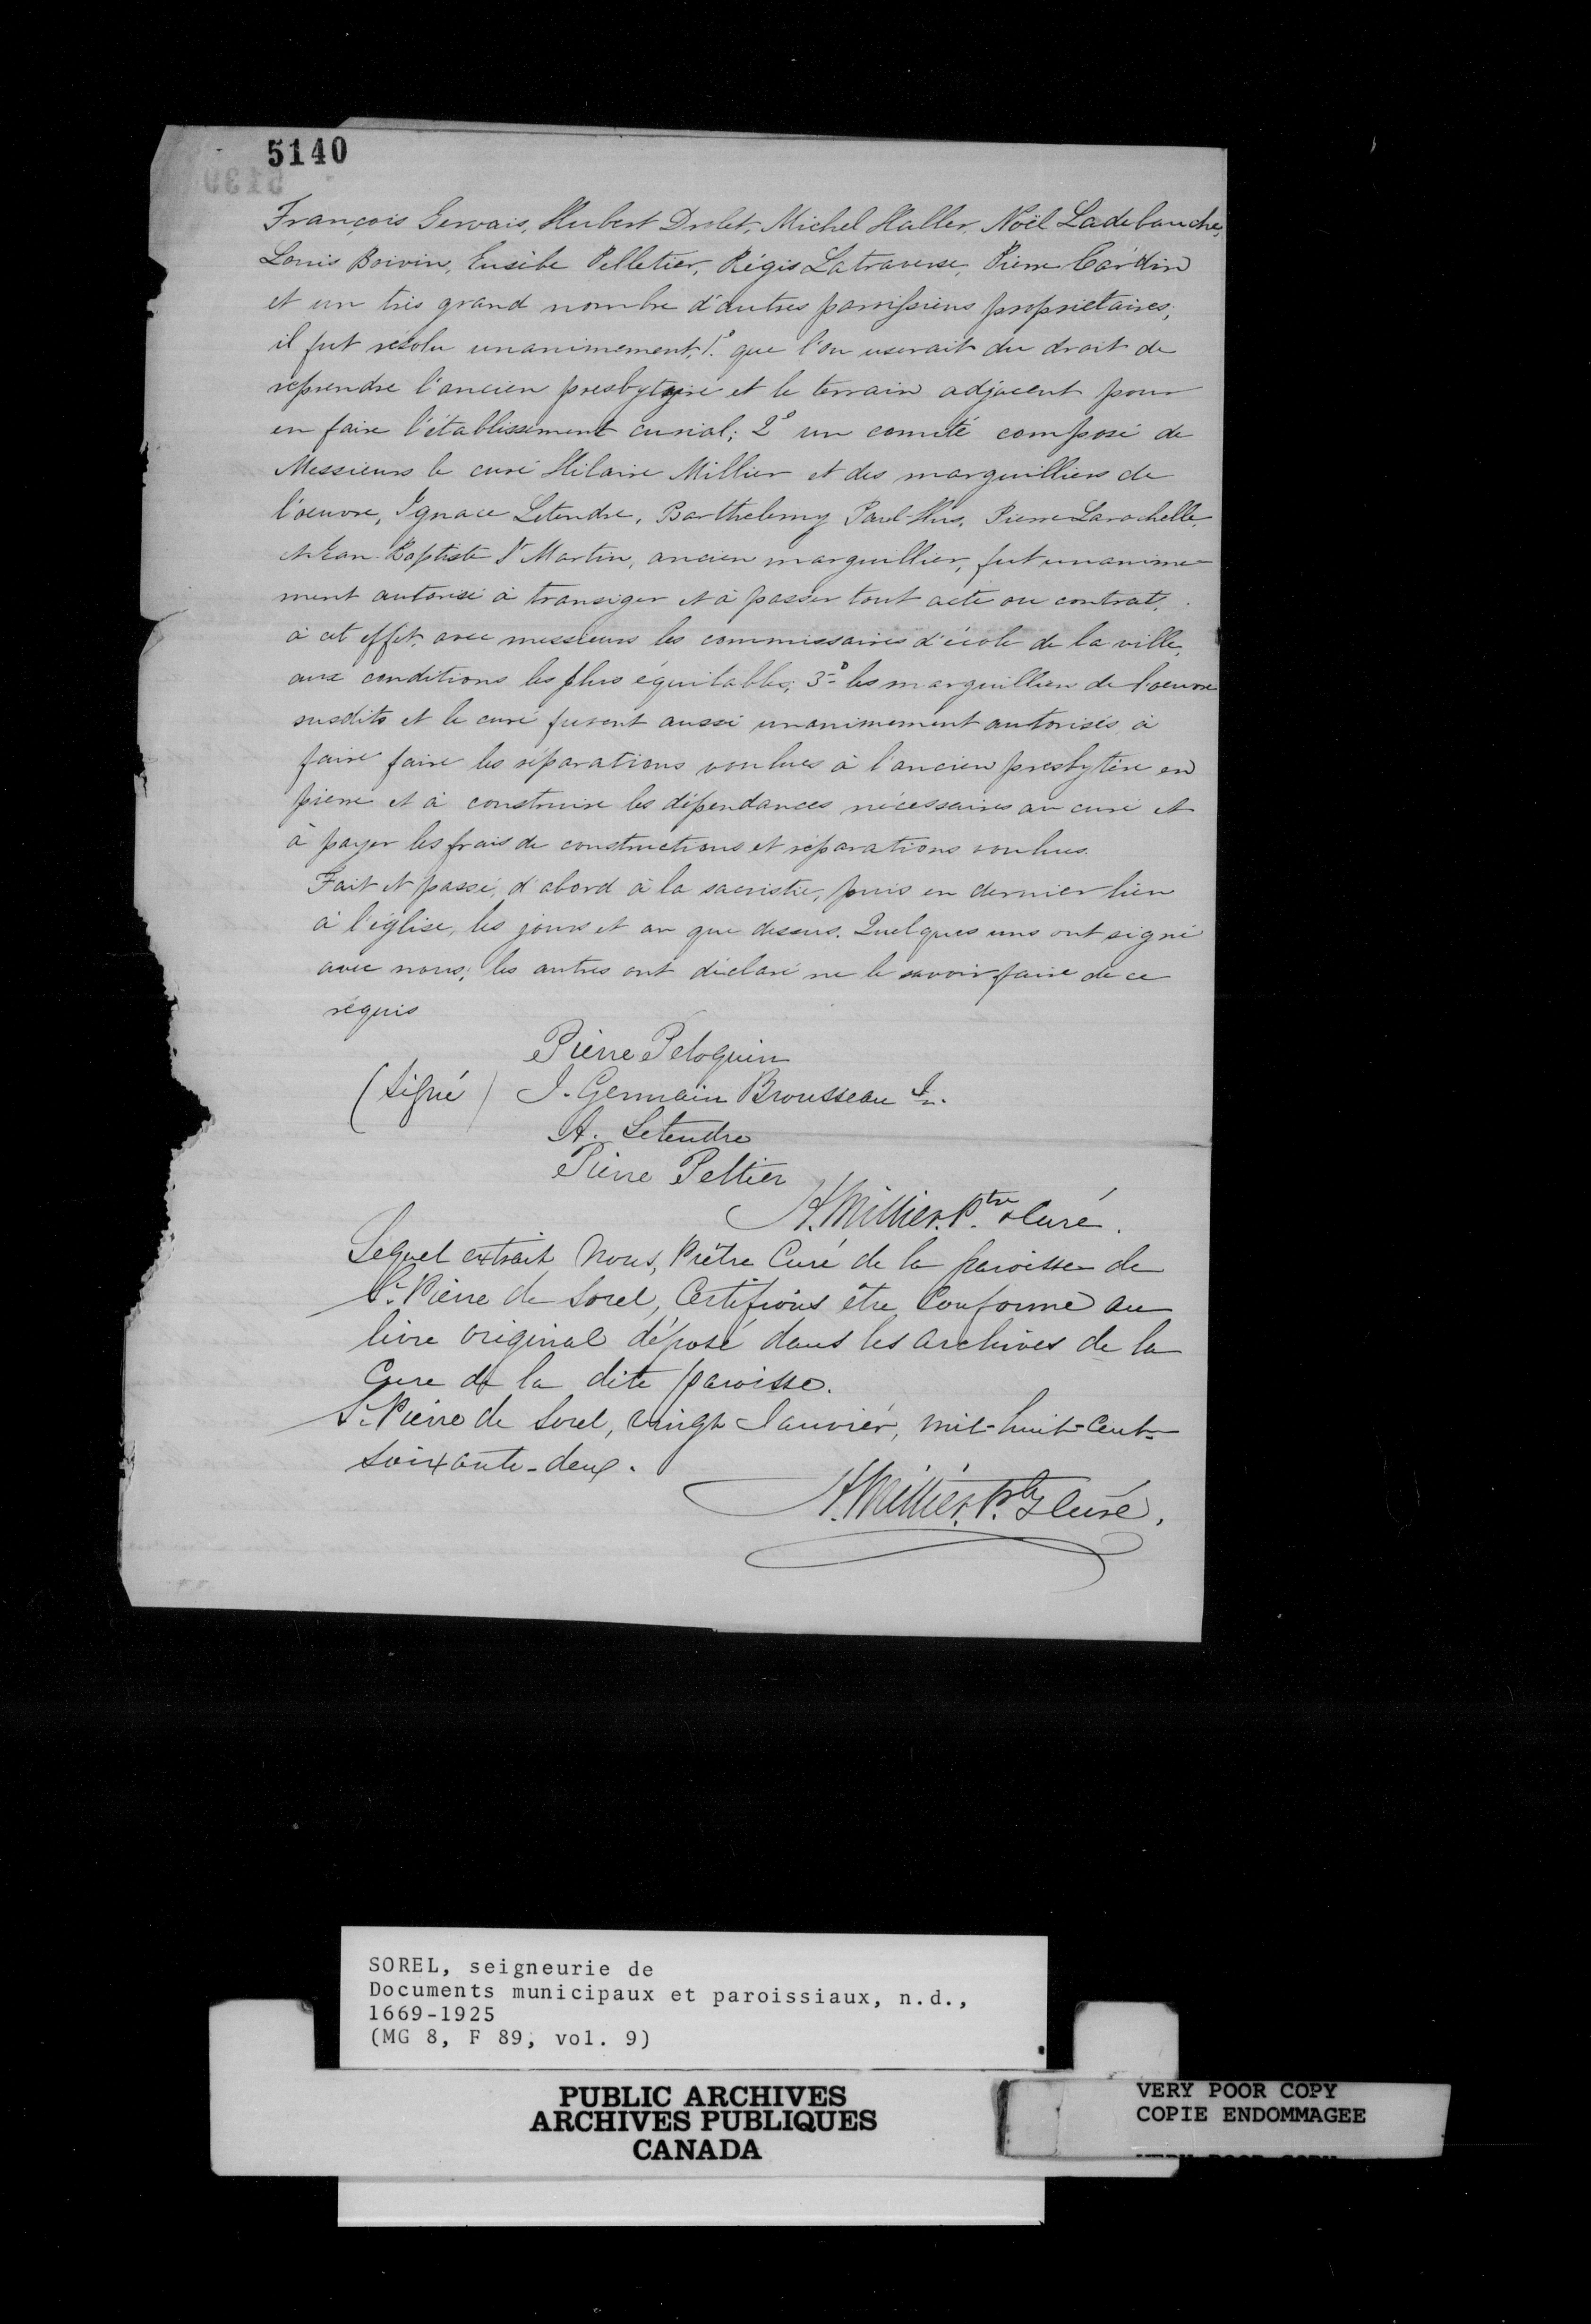 5140
François Gervais, Hubert Drolet, Michel Haller, Noël Ladebauche,
Louis Boivin, Eusèbe Pelletier, Régis Latraverse, Pierre Cardin
et un très grand nombre d'autres paroissiens propriétaires;
il fut résolu unanimement, 1º. que l'on userait du droit de
reprendre l'ancien presbytère et le terrain adjacent pour
en faire l'établissement curial; 2º un comité composé de
Messieurs le curé Hilaire Millier et des marguilliers de
l'oeuvre, Ignace Letendre, Barthelemy Paul-Hus, Pierre Larochelle,
et Jean-Baptiste St Martin, ancien marguillier, fut unanime-
ment autorisé à transiger et à passer tout acte ou contrat,
à cet effet, avec messieurs les commissaires d'école de la ville,
aux conditions les plus équitables; 3º les marguilliers de l'oeuvre
susdits et le curé furent aussi unanimement autorisés à
faire faire les réparations voulues à l'ancien presbytère en
pierre et à construire les dépendances nécessaires au curé et
à payer les frais de constructions et réparations voulues.
Fait et passé, d'abord à la sacristie, puis en dernier lieu
à l'église, les jours et an que dessus. Quelques uns ont signé
avec nous; les autres ont déclaré ne le savoir faire de ce
requis
Pierre Péloquin
(Signé) J. Germain Brousseau
A. Letendre
Pierre Peltier
H. Millier. Ptre Curé.
Lequel extrait Nous, Prêtre Curé de la paroisse de
St. Pierre de Sorel, Certifions être Conforme au
livre original déposé dans les archives de la
Cure de la dite paroisse.
St. Pierre de Sorel, vingt Janvier, mil-huit-cent-
soixante-deux.
H. Millier. Ptre Curé.
SOREL, seigneurie de
Documents municipaux et paroissiaux, n.d.,
1669-1925
(MG 8, F 89, vol. 9)
PUBLIC ARCHIVES
ARCHIVES PUBLIQUES
CANADA
VERY POOR COPY
COPIE ENDOMMAGEE